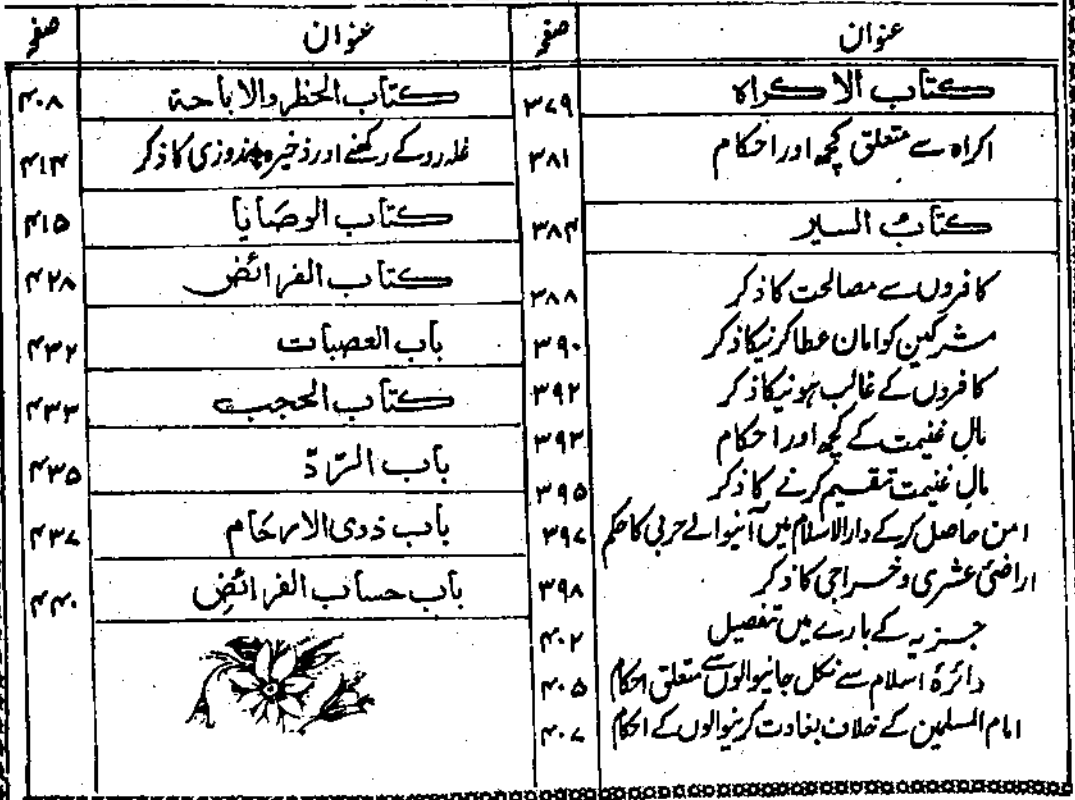 عنوان صفحہ
کتاب الاکراہ ۳۷۹
اکراہ سے متعلق کچھ اور احکام ۳۸۱
کتابُ السیر ۳۸۴
کافروں سے مصالحت کا ذکر ۳۸۸
مشرکین کو امان عطا کرنیکا ذکر ۳۹۰
کافروں کے غالب ہونیکا ذکر ۳۹۲
مالِ غنیمت کے کچھ اور احکام ۳۹۳
مالِ غنیمت تقسیم کرنے کا ذکر ۳۹۵
امن حاصل کرکے دارالاسلام میں آنیوالے حربی کا حکم ۳۹۷
اراضیٔ عشری و خراجی کا ذکر ۳۹۸
جزیہ کے بارے میں تفصیل ۴۰۲
دائرۂ اسلام سے نکل جانیوالوں سے متعلق احکام ۴۰۵
امام المسلمین کے خلاف بغاوت کرنیوالوں کے احکام ۴۰۷
عنوان صفحہ
کتاب الحظر والاباحۃ ۴۰۸
غلہ روکے رکھنے اور ذخیرہ اندوزی کا ذکر ۴۱۴
کتاب الوصَایا ۴۱۵
کتاب الفرائض ۴۲۸
باب العصبات ۴۳۲
کتاب الحجب ۴۳۳
باب الرَّدّ ۴۳۵
باب ذوی الارحَام ۴۳۷
باب حساب الفرائضِ ۴۴۰